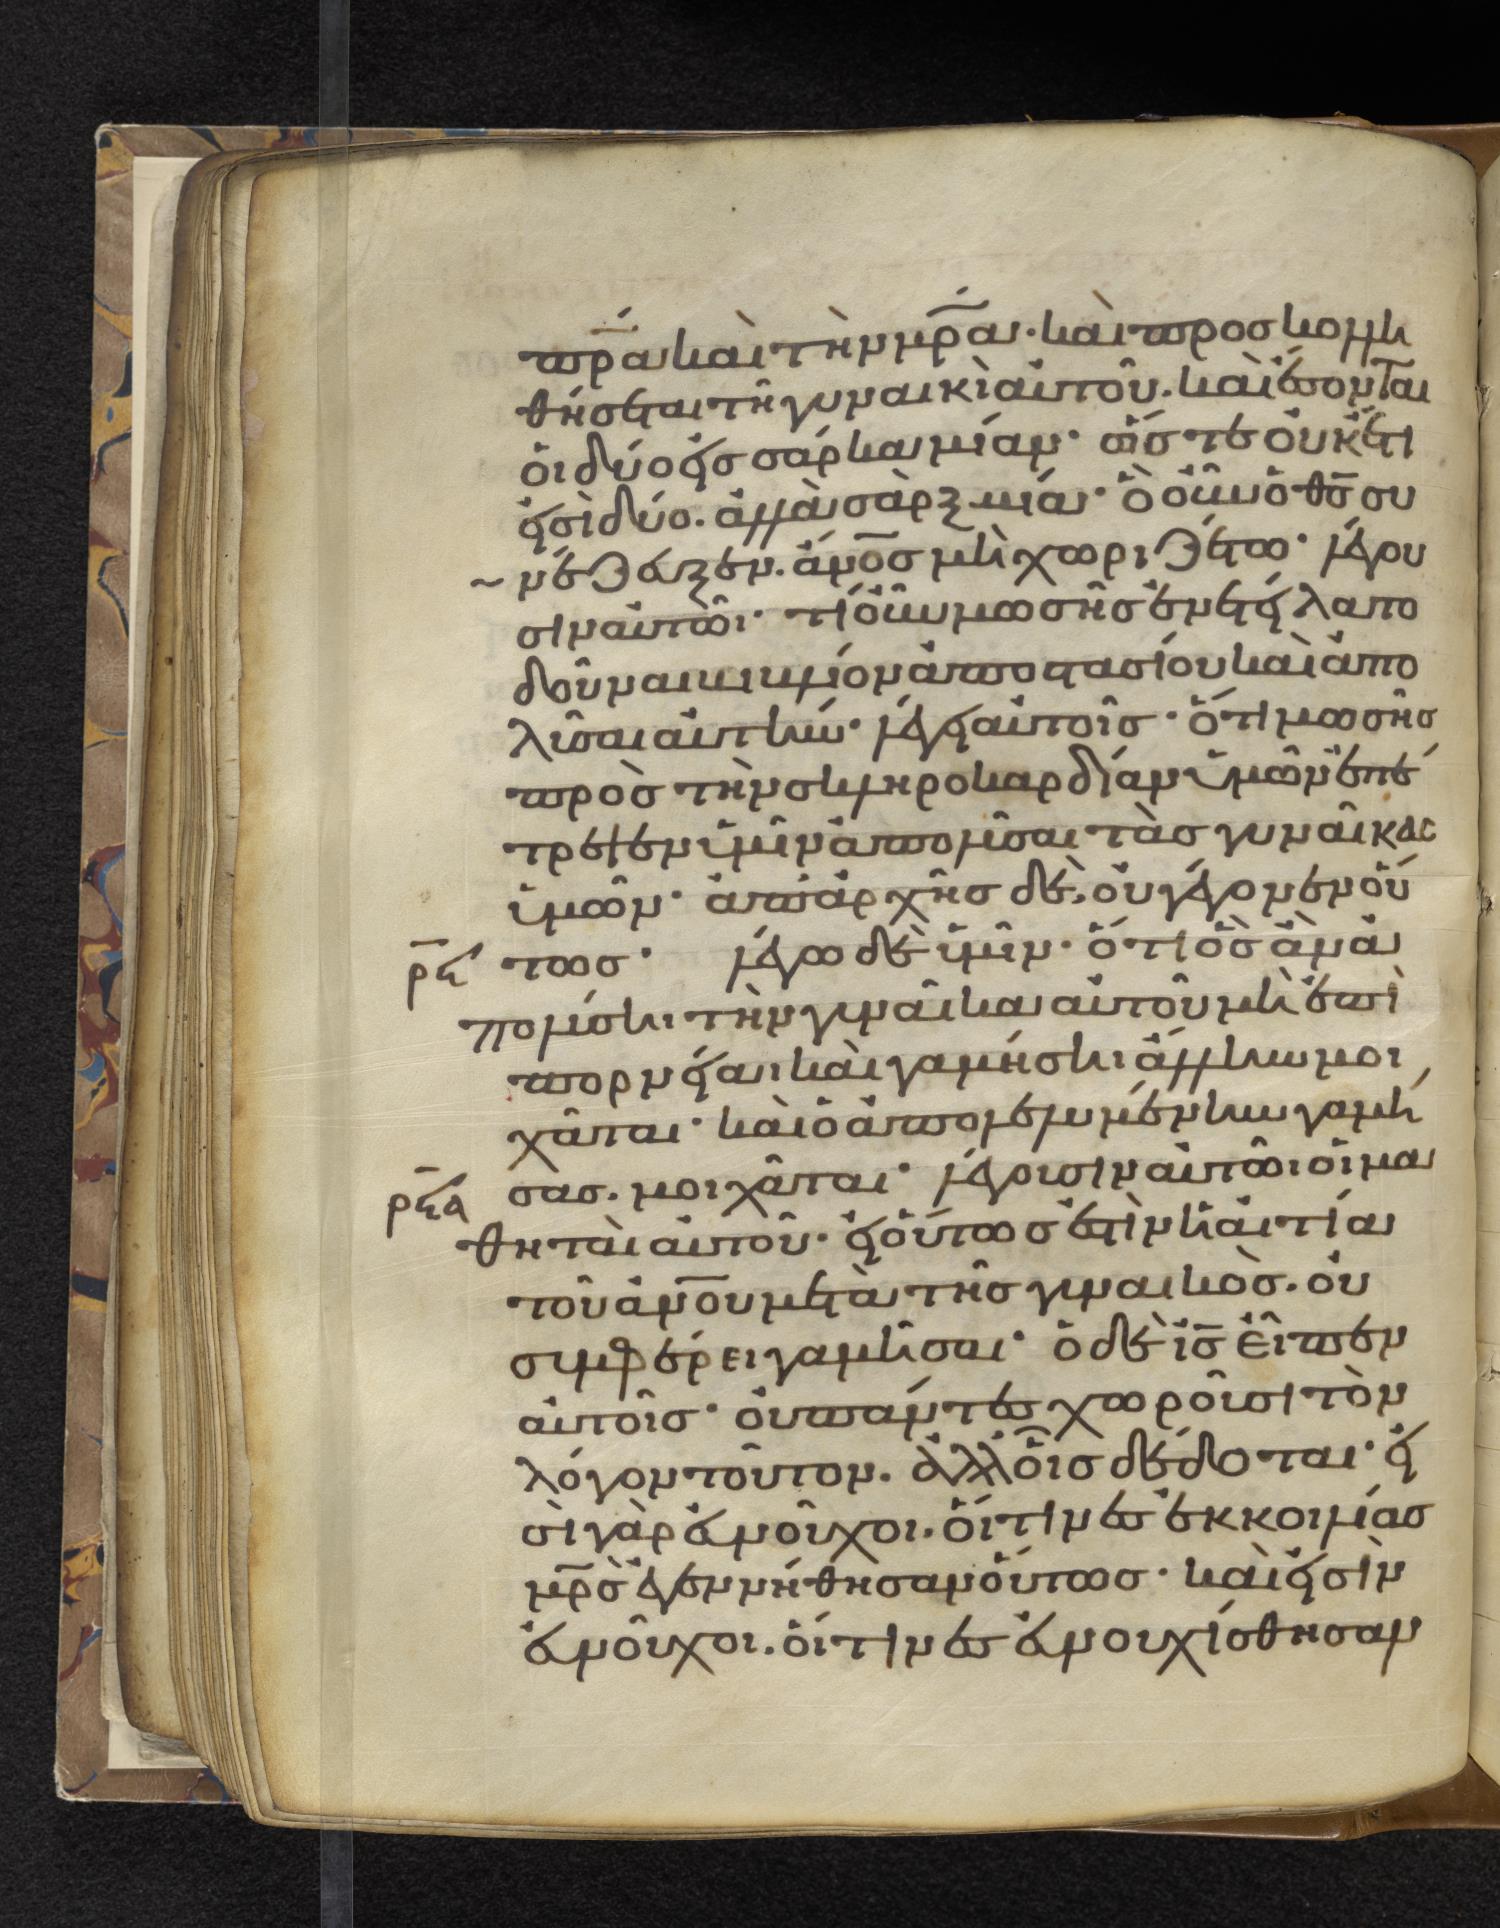 πρ̅α καὶ τὴν μρ̅α· καὶ προσκολλη
θήσεται τῆ γυναικὶ αὐτοῦ. καὶ ἔσονται
οἱ δύο εἰς σάρκα μίαν· ὥστε οὐκέτι
εἰσὶ δύο. ἀλλὰ σὰρξ μία· ὃ οὖν ὁ θς̅ συ
νέζευξεν. ἄνο̅ς μὴ χωριζέτω· λέγου
σιν αὐτῶι· τί οὖν μωσῆς ἐνετείλατο
δοῦναι βιβλίον ἀποστασίου καὶ ἀπο
λῦσαι αὐτήν· λέγει αὐτοῖς· ὅτι μωσῆς
πρὸς τὴν σκληροκαρδίαν ὑμῶν ἐπέ
τρεψεν ὑμῖν ἀπολῦσαι τὰς γυναῖκας
ὑμῶν· ἀπ' ἀρχῆς δὲ, οὐ γέγονεν οὕ
ρ̅ϟ τως· λέγω δὲ ὑμῖν· ὅτι ὃς ἂν ἀ
πολύσηι τὴν γυναῖκα αὐτοῦ μὴ ἐπὶ
πορνείαι καὶ γαμήσηι ἄλλην μοι
χᾶται· καὶ ὁ ἀπολελυμένην γαμή
ρ̅ϟα σας. μοιχᾶται· λέγουσιν αὐτῶι οἱ μα
θηταὶ αὐτοῦ· εἰ οὕτως ἐστὶν ἡ αἰτία
τοῦ ἀνο̅υ μετὰ τῆς γυναικὸς. οὐ
συμφέρει γαμῆσαι· ὁ δὲ ις̅ εἶπεν
αὐτοῖς· οὐ πάντες χωροῦσι τὸν
λόγον τοῦτον. ἀλλ' οἷς δέδοται· εἰ
σὶ γὰρ εὐνοῦχοι. οἵτινες ἐκ κοιλίας
μρ̅ς ἐγεννήθησαν οὕτως· καὶ εἰσὶν
εὐνοῦχοι. οἵτινες εὐνουχίσθησαν